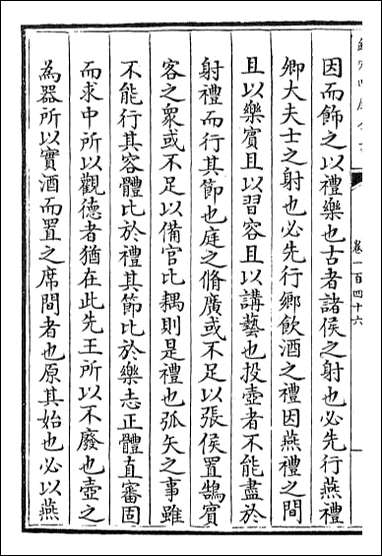 卷一百四十六
因而飾之以禮樂也古者諸侯之射也必先行燕禮
卿大夫士之射也必先行鄉飲酒之禮因燕禮之間
且以樂賓且以習容且以講藝也投壺者不能盡於
射禮而行其節也庭之脩廣或不足以張侯置鵠賓
客之衆或不足以備官比耦則是禮也弧矢之事雖
不能行其容體比於禮其節比於樂志正體直審固
而求中所以觀德者猶在此先王所以不廢也壺之
為器所以實酒而置之席間者也原其始也必以燕